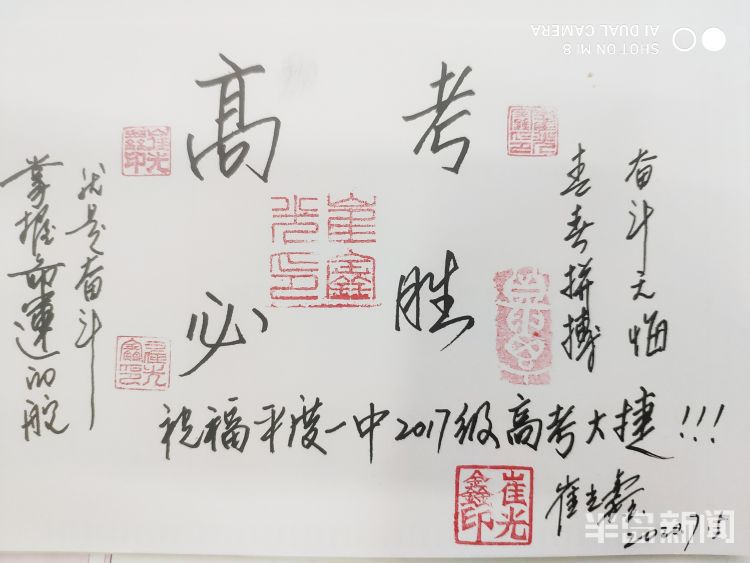 高考
必胜
奋斗无悔
青春拼搏
就是奋斗
掌握命运的舵
祝福平度一中2017级高考大捷!!!
崔光鑫
2020.7
崔光鑫印
崔光鑫印
崔光鑫印
崔光鑫印
崔光鑫印
SHOT ON MI 8
AI DUAL CAMERA
半岛新闻